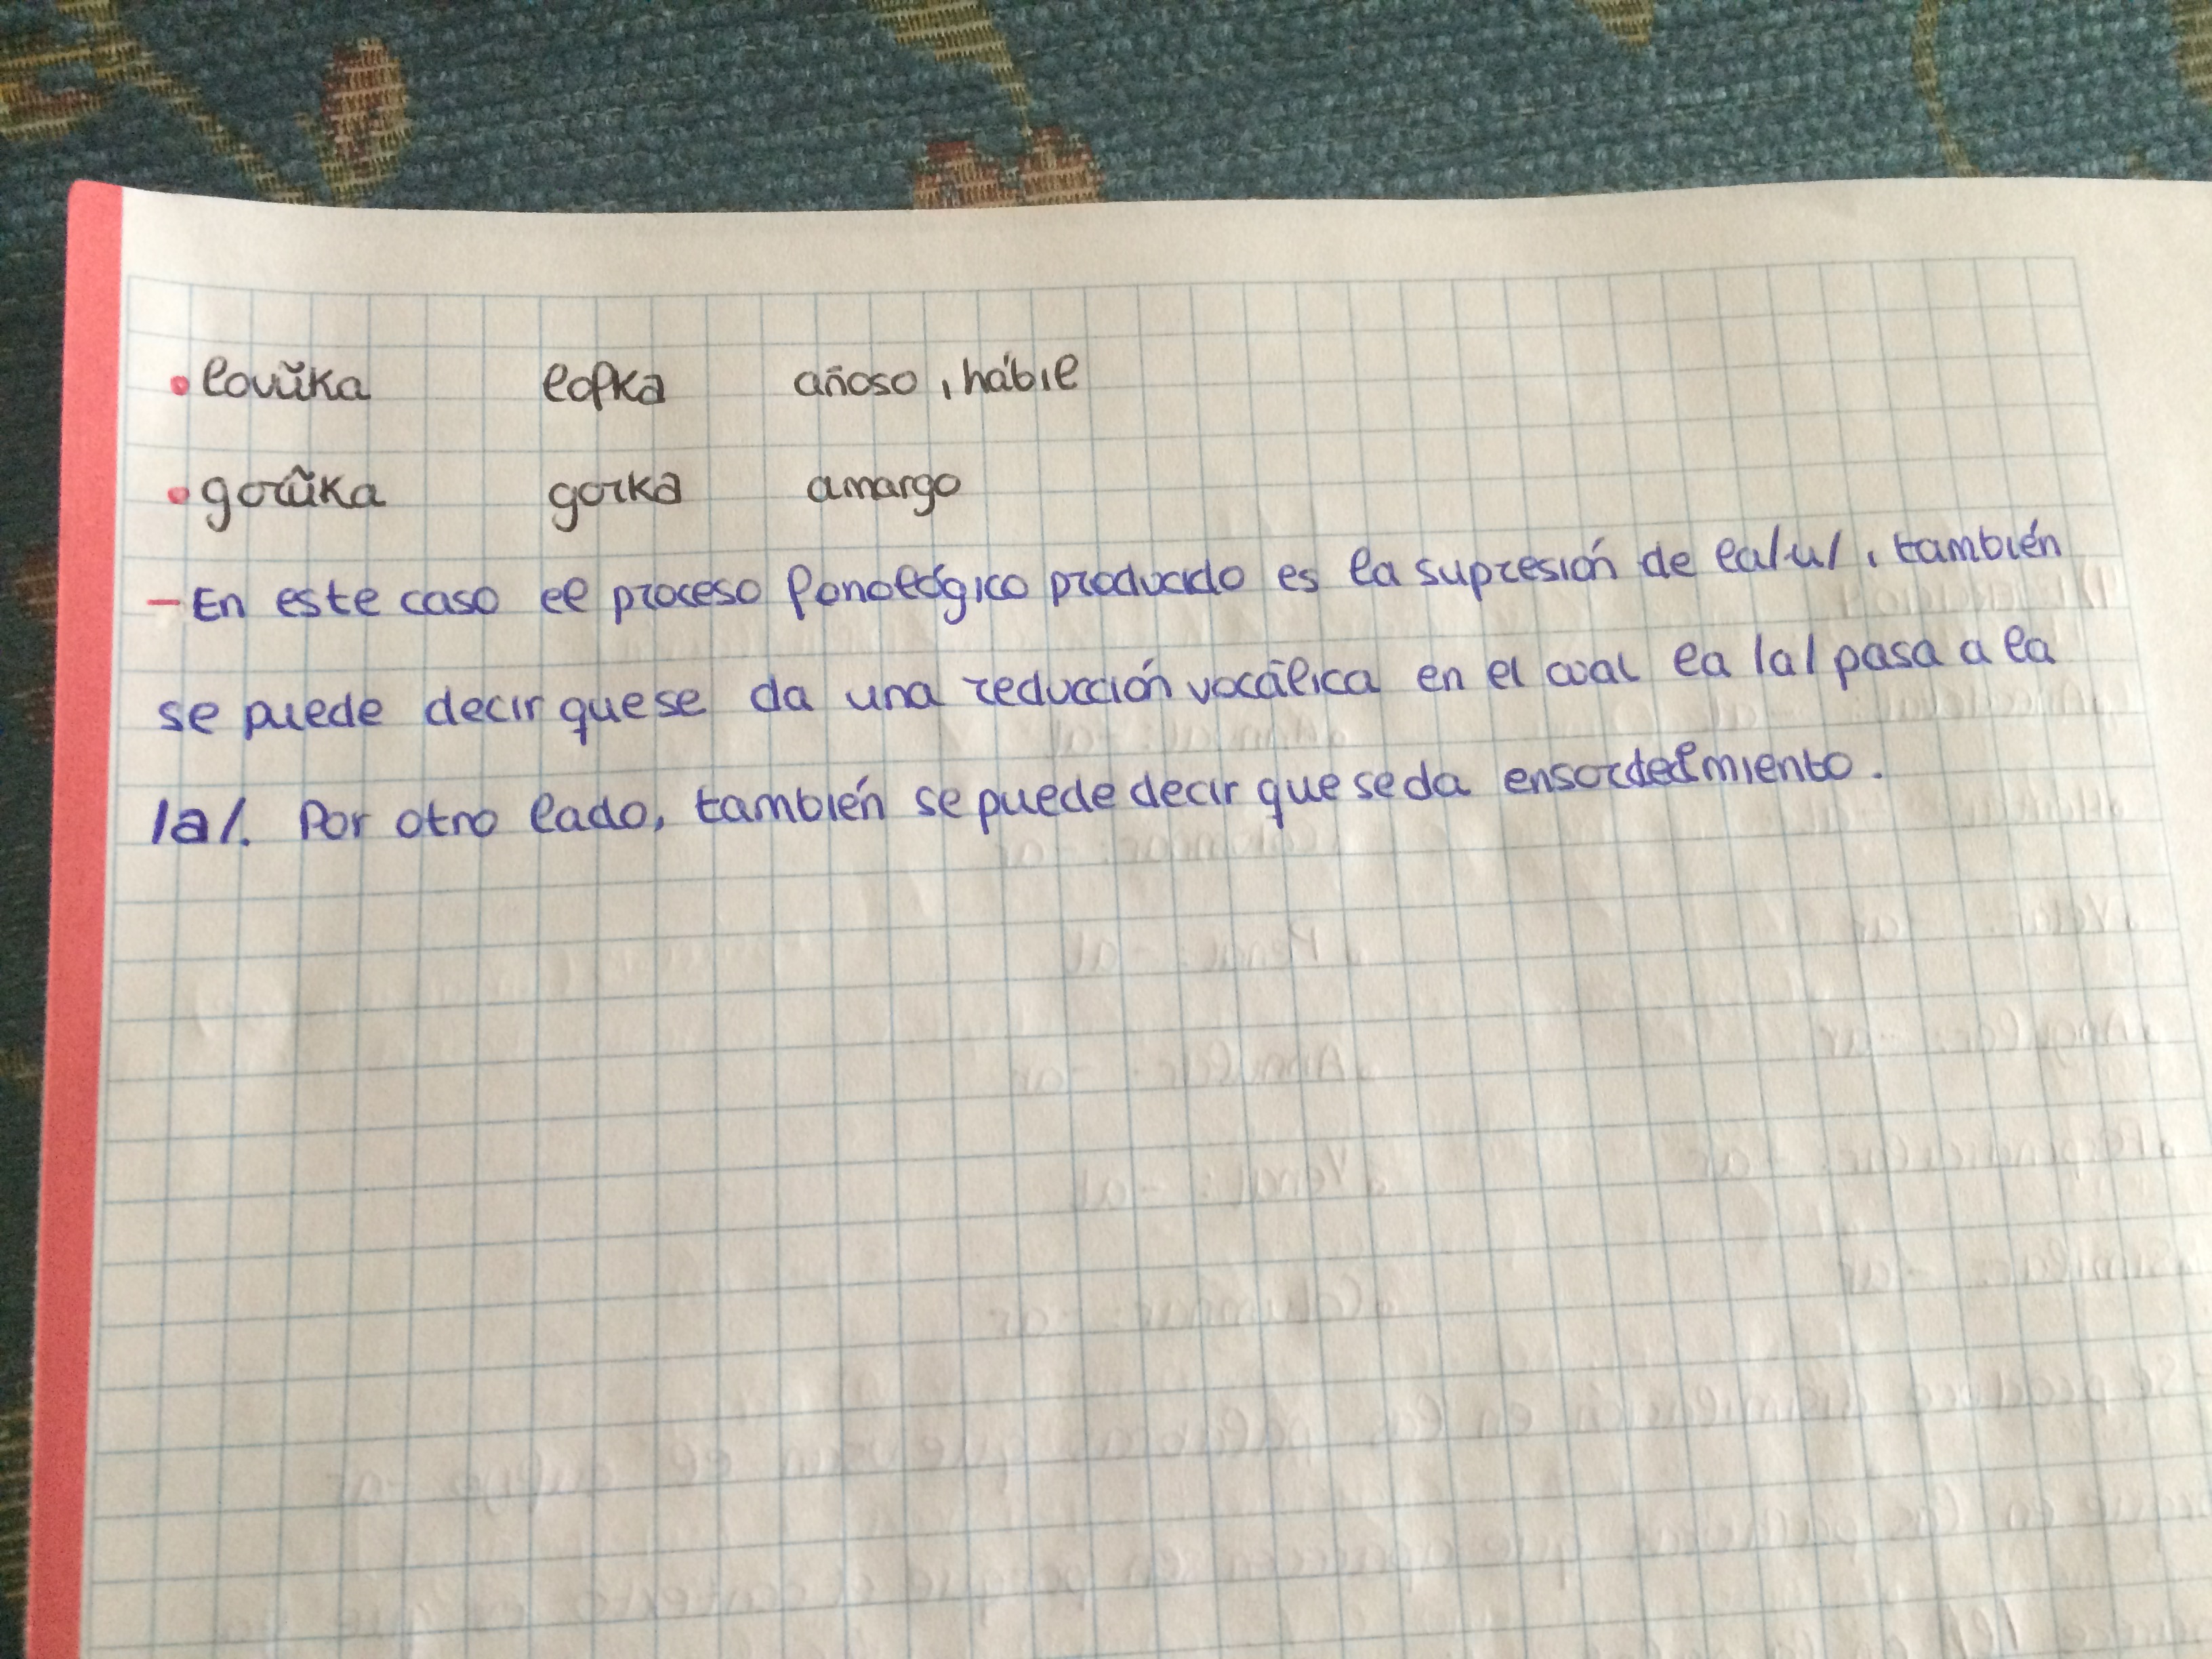 • lovŭka lofka añoso, hábil
• gorŭka gorka amargo
- En este caso el proceso fonológico producido es la supresión de la /u/, también
se puede decir que se da una reducción vocálica en el cual la /a/ pasa a la
/a/. Por otro lado, también se puede decir que se da